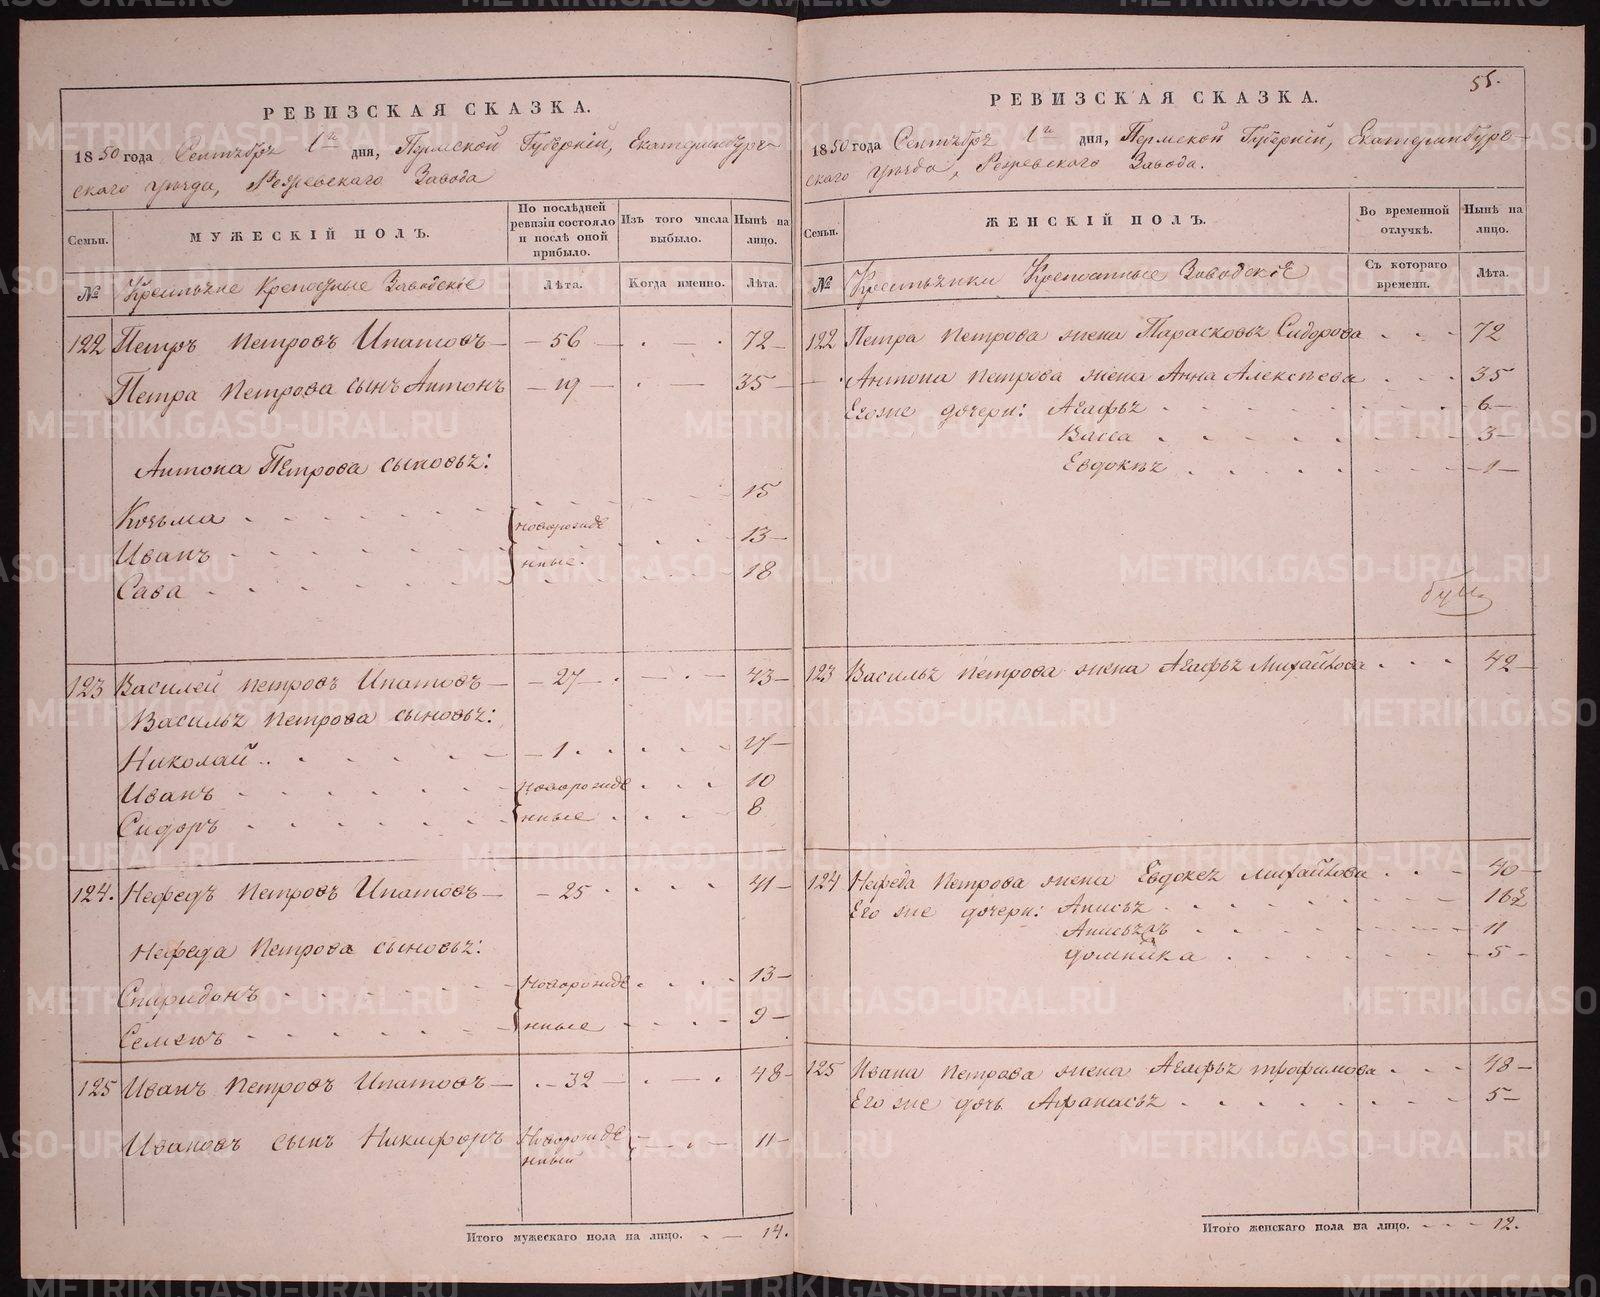 РЕВИЗСКАЯ СКАЗКА.
1850 года Сентября 1го дня, Пермской Губерніи, Екатеринбург-
скаго уѣзда, Режевскаго Завода
Семьи.
МУЖЕСКІЙ ПОЛЪ.
По послѣдней ревизіи состояло и послѣ оной прибыло.
Изъ того числа выбыло.
Нынѣ на лицо.
№
Крестьяне Крепостные Заводскіе
Лѣта.
Когда именно.
Лѣта.
122 Петръ Петровъ Ипатовъ — 56 — 72
Петра Петрова сынъ Антонъ — 19 — 35
Антона Петрова сыновья:
Козьма 15
Иванъ новорожде 13
Сава нные. 18
123 Василей Петровъ Ипатовъ — 27 — 43
Василья Петрова сыновья:
Николай — 1 17
Иванъ Новорожде 10
Сидоръ нные 8
124. Нефедъ Петровъ Ипатовъ — 25 41
Нефеда Петрова сыновья:
Спиридонъ Новорожде 13
Семенъ нные 9
125 Иванъ Петровъ Ипатовъ — 32 — 48
Ивановъ сынъ Никифоръ Новорожде 11
нный
Итого мужескаго пола на лицо. 14.
55.
РЕВИЗСКАЯ СКАЗКА.
1850 года Сентября 1го дня, Пермской Губерніи, Екатеринбург-
скаго уѣзда, Режевскаго Завода.
Семьи.
ЖЕНСКІЙ ПОЛЪ.
Во временной отлучкѣ.
Нынѣ на лицо.
№
Крестьянки Крепостные Заводскіе
Съ котораго времени.
Лѣта.
122 Петра Петрова жена Парасковья Сидорова 72
Антона Петрова жена Анна Алексѣева 35
Его же дочери: Агафья 6
Васса 3
Евдокія 1
123 Василья Петрова жена Агафья Михайлова 42
124 Нефеда Петрова жена Евдокея Михайлова 40
Его же дочери: Анисья 16½
Анисья 11
Домника 5
125 Ивана Петрова жена Агафья Трофимова 48
Его же дочь Афанасья 5
Итого женскаго пола на лицо. 12.
METRIKI.GASO-URAL.RU